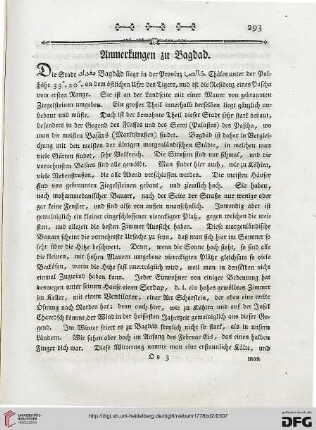 293
Anmerkungen zu Bagdad.
Die Stadt بغداد Bagdâd liegt in der Provinz خالص Châles unter der Pol-
höhe 33°. 20′. an dem östlichen Ufer des Tigers, und ist die Residenz eines Pascha
vom ersten Range. Sie ist an der Landseite mit einer Mauer von gebrannten
Ziegelsteinen umgeben. Ein großer Theil innerhalb derselben liegt gänzlich unbe-
bauet und wüste. Doch ist der bewohnte Theil dieser Stadt sehr stark bebauet,
besonders in der Gegend des Flusses und des Saroj (Palastes) des Pascha, wo
man die meisten Basârs (Marktstraßen) findet. Bagdâd ist daher in Verglei-
chung mit den meisten der übrigen morgenländischen Städte, in welchen man
viele Gärten findet, sehr Volkreich. Die Straßen sind schmal, und die
vornehmsten Basars sind alle gewölbt. Man findet hier auch, wie zu Kahira,
viele Nebenstraßen, die alle Abend verschlossen werden. Die meisten Häuser
sind von gebrannten Ziegelsteinen gebaut, und ziemlich hoch. Sie haben,
nach mohammedanischer Bauart, nach der Seite der Straße nur wenige oder
gar keine Fenster, und sind also von außen unansehnlich. Inwendig aber ist
gemeiniglich ein kleiner eingeschlossener viereckigter Platz, gegen welchen die mei-
sten, und allezeit die besten Zimmer Aussicht haben. Diese morgenländische
Bauart scheint die vornehmste Ursache zu seyn, daß man sich hier im Sommer so
sehr über die Hitze beschwert. Denn, wenn die Sonne hoch steht, so sind alle
die kleinen, mit hohen Mauern umgebene viereckigten Plätze gleichsam so viele
Backöfen, worin die Hitze fast unerträglich wird, weil man in denselben nicht
einmal Zugwind haben kann. Jeder Einwohner von einiger Bedeutung hat
deswegen unter seinem Hause einen Serdap, d. i. ein hohes gewölbtes Zimmer
im Keller, mit einem Ventilator, einer Art Schorstein, der oben eine weite
Öfnung nach Norden hat, oben auch hier, wie zu Kahira und auf der Insel
Charedsch kommt der Wind in der heißesten Jahrszeit gemeiniglich aus dieser Ge-
gend. Im Winter friert es zu Bagdâd ziemlich so stark, als in unsern
Ländern. Wie sahen aber doch im Anfang des Februar Eis, das einen halben
Finger dick war. Diese Witterung nannte man eine erstaunliche Kälte, und
Oo 3 man
UNIVERSITÄTS-
BIBLIOTHEK
HEIDELBERG
http://digi.ub.uni-heidelberg.de/diglit/niebuhr1778bd2/0307
© Universitätsbibliothek Heidelberg
Gefördert durch
DFG